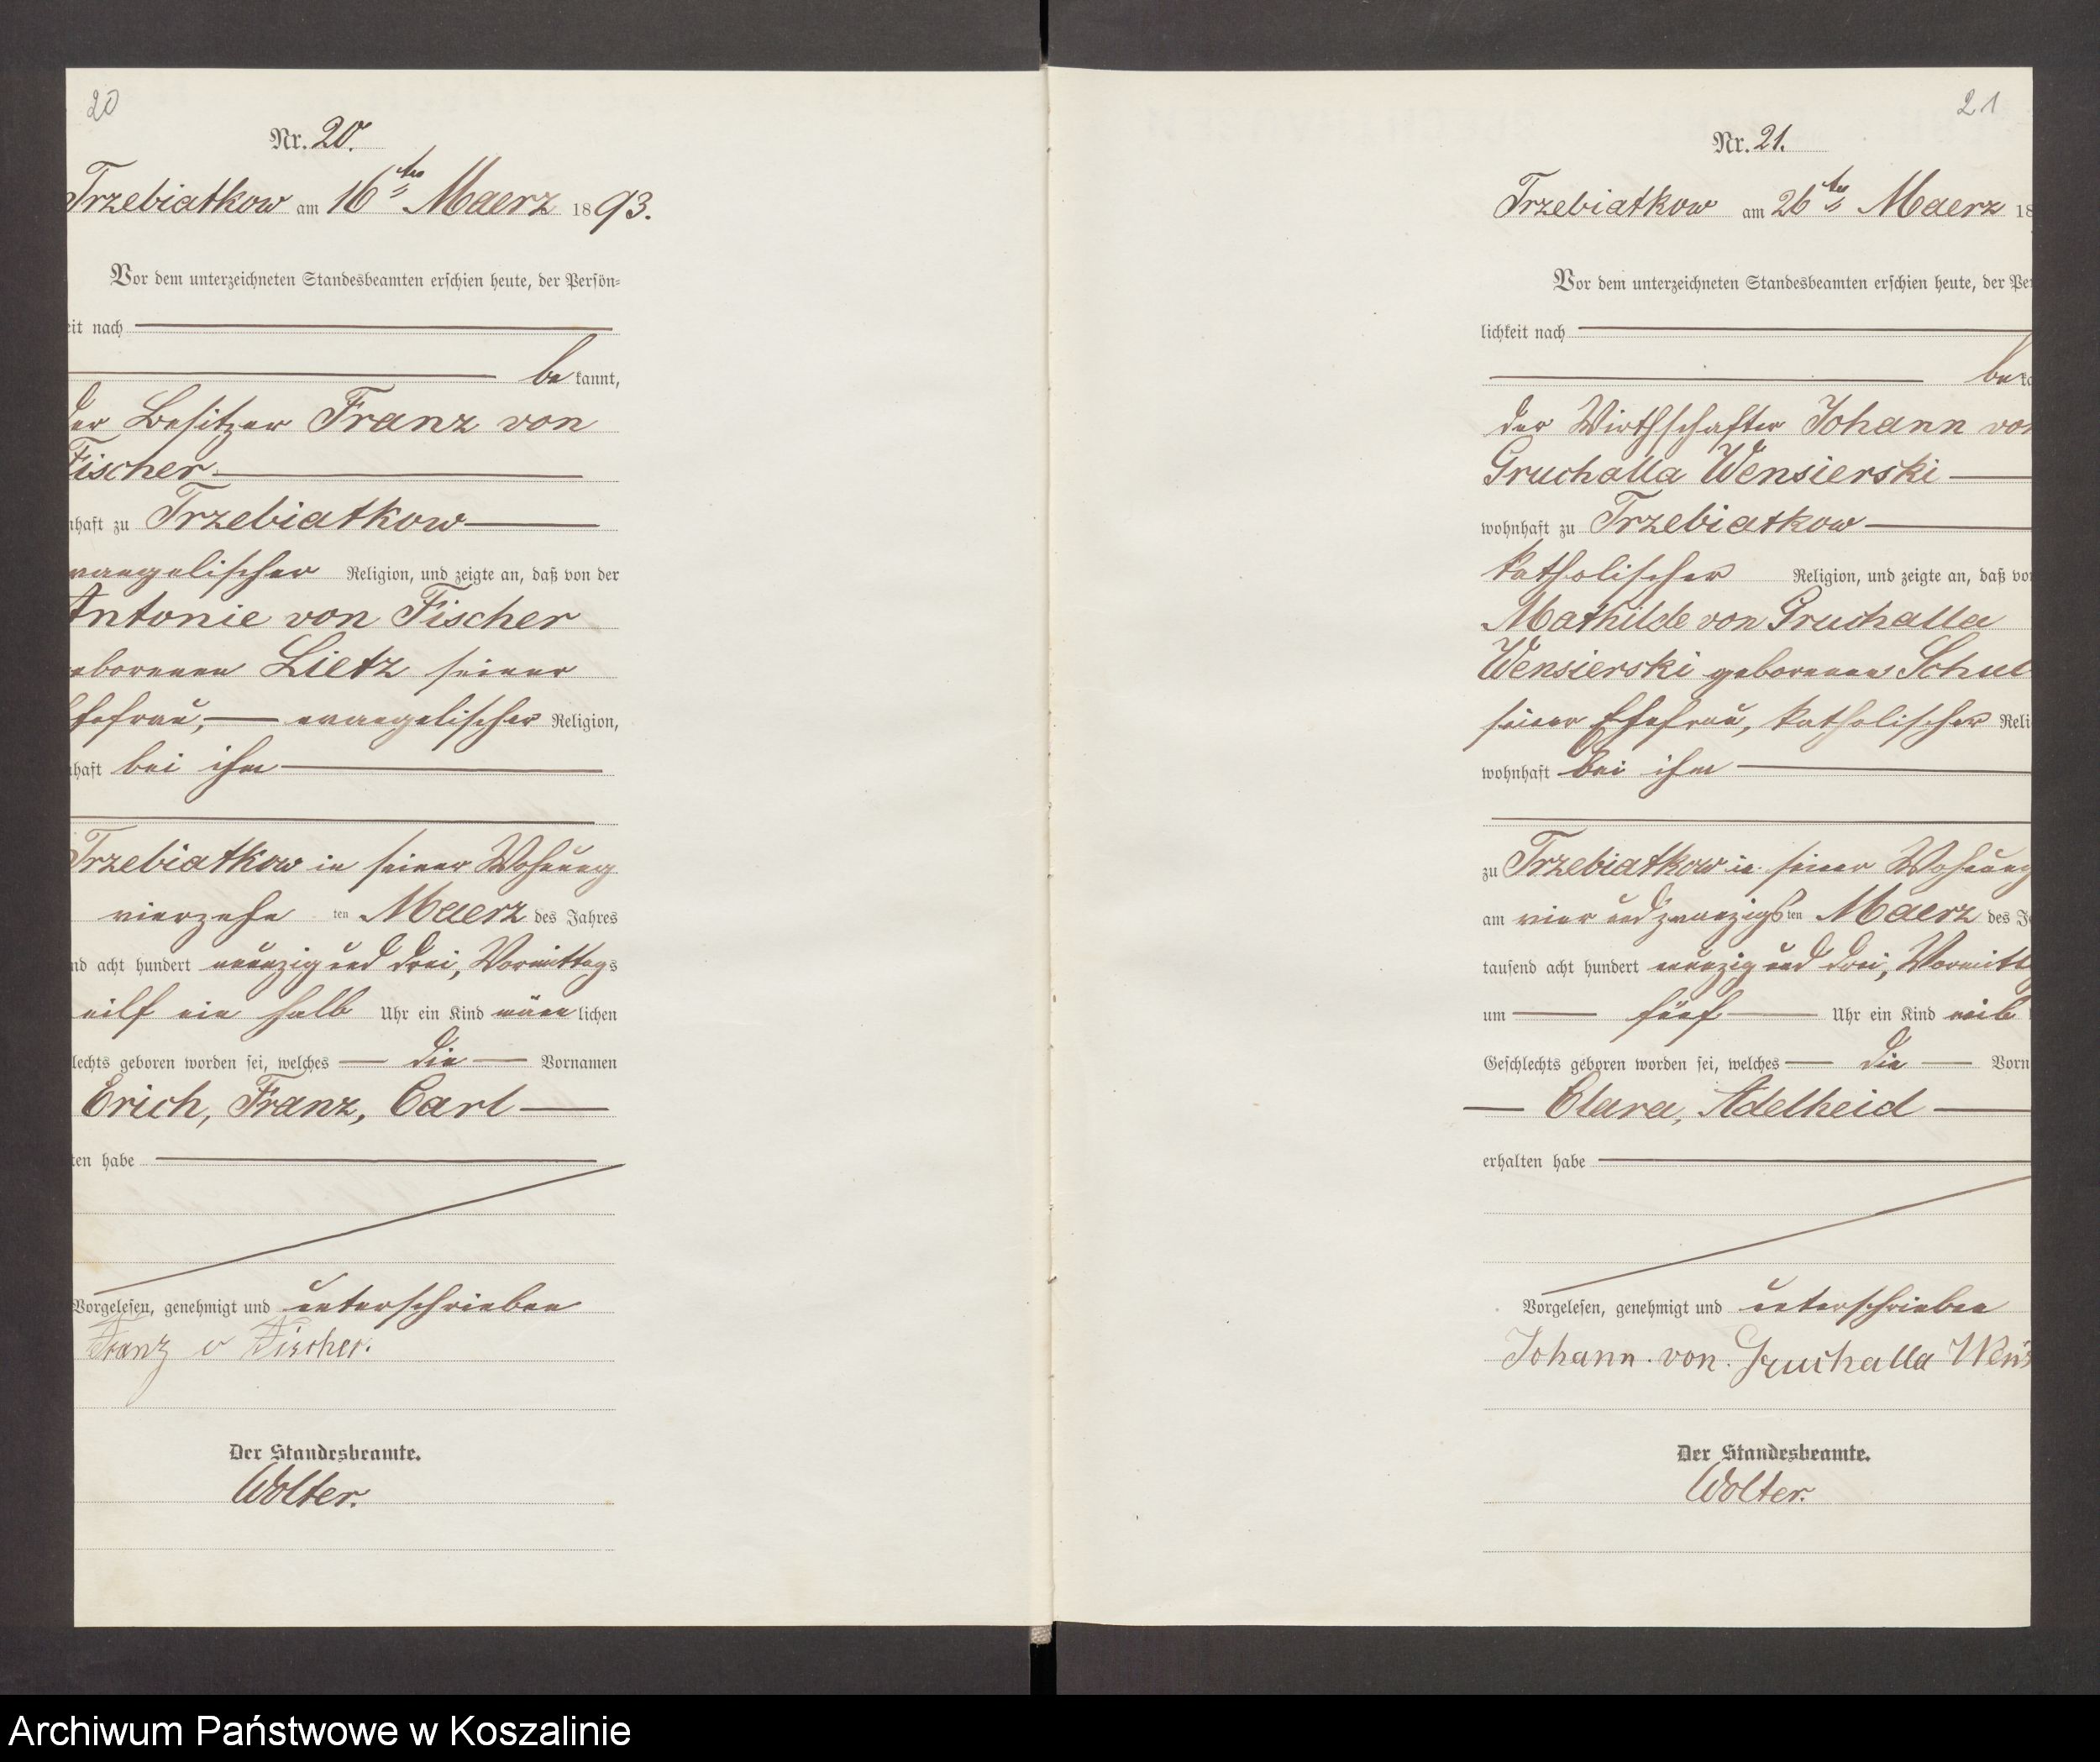 20
Nr. 20.
Trzebiatkow am 16ten Maerz 1893.
Vor dem unterzeichneten Standesbeamten erschien heute, der Persön=
eit nach
be kannt,
der Besitzer Franz von
Fischer
nhaft zu Trzebiatkow
vangelischer Religion, und zeigte an, daß von der
Antonie von Fischer
eborenen Lietz seiner
Ehefrau, evangelischer Religion,
nhaft bei ihm
Trzebiatkow in seiner Wohnung
vierzehn ten Maerz des Jahres
nd acht hundert neunzig und drei, Vormittags
eilf ein halb Uhr ein Kind männlichen
lechts geboren worden sei, welches die Vornamen
Erich, Franz, Carl
ten habe
Vorgelesen, genehmigt und unterschrieben
Franz v Fischer.
Der Standesbeamte.
Wolter.
21
Nr. 21.
Trzebiatkow am 26ten Maerz 18
Vor dem unterzeichneten Standesbeamten erschien heute, der Per
lichkeit nach
be k
der Wirthschafter Johann von
Gruchalla Wensierski
wohnhaft zu Trzebiatkow
katholischer Religion, und zeigte an, daß von
Mathilde von Gruchalla
Wensierski geborenen Schul
seiner Ehefrau, katholischer Reli
wohnhaft bei ihm
zu Trzebiatkow in seiner Wohnung
am vier und zwanzigsten Maerz des J
tausend acht hundert neunzig und drei, Vormitt
um fünf Uhr ein Kind weib
Geschlechts geboren worden sei, welches die Vorn
Clara, Adelheid
erhalten habe
Vorgelesen, genehmigt und unterschrieben
Johann von Gruchalla Wens
Der Standesbeamte.
Wolter.
Archiwum Państwowe w Koszalinie